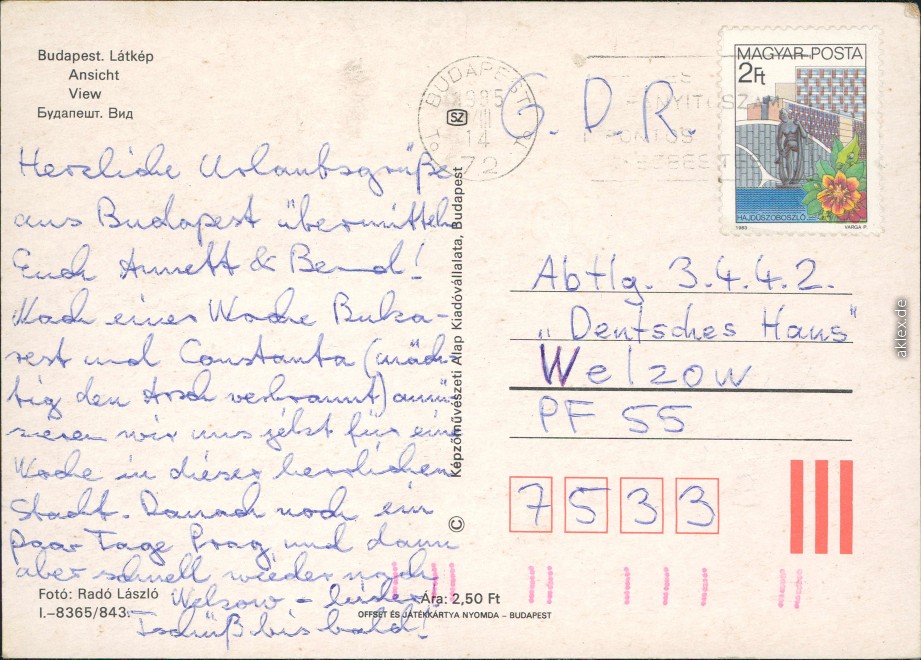 Budapest. Látkép
Ansicht
View
Будапешт. Вид
Herzliche Urlaubsgrüße
aus Budapest übermitteln
Euch Annett & Bernd!
Nach einer Woche Buka-
rest und Constanta (mäch-
tig den Arsch verbrannt) amü-
sieren wir uns jetzt für eine
Woche in dieser herrlichen
Stadt. Danach noch ein
paar Tage Prag und dann
aber schnell wieder nach
Welzow – leider.
Tschüß bis bald!
Fotó: Radó László
I.–8365/843.
Ára: 2,50 Ft
OFFSET ÉS JÁTÉKKÁRTYA NYOMDA – BUDAPEST
© Képzőművészeti Alap Kiadóvállalata, Budapest
SZ
BUDAPEST
1985 VIII
14
72
MAGYAR POSTA
2Ft
HAJDÚSZOBOSZLÓ
1983 VARGA P.
G.D.R.
Abtlg. 3.4.4.2.
„Deutsches Haus"
Welzow
PF 55
7533
aklex.de